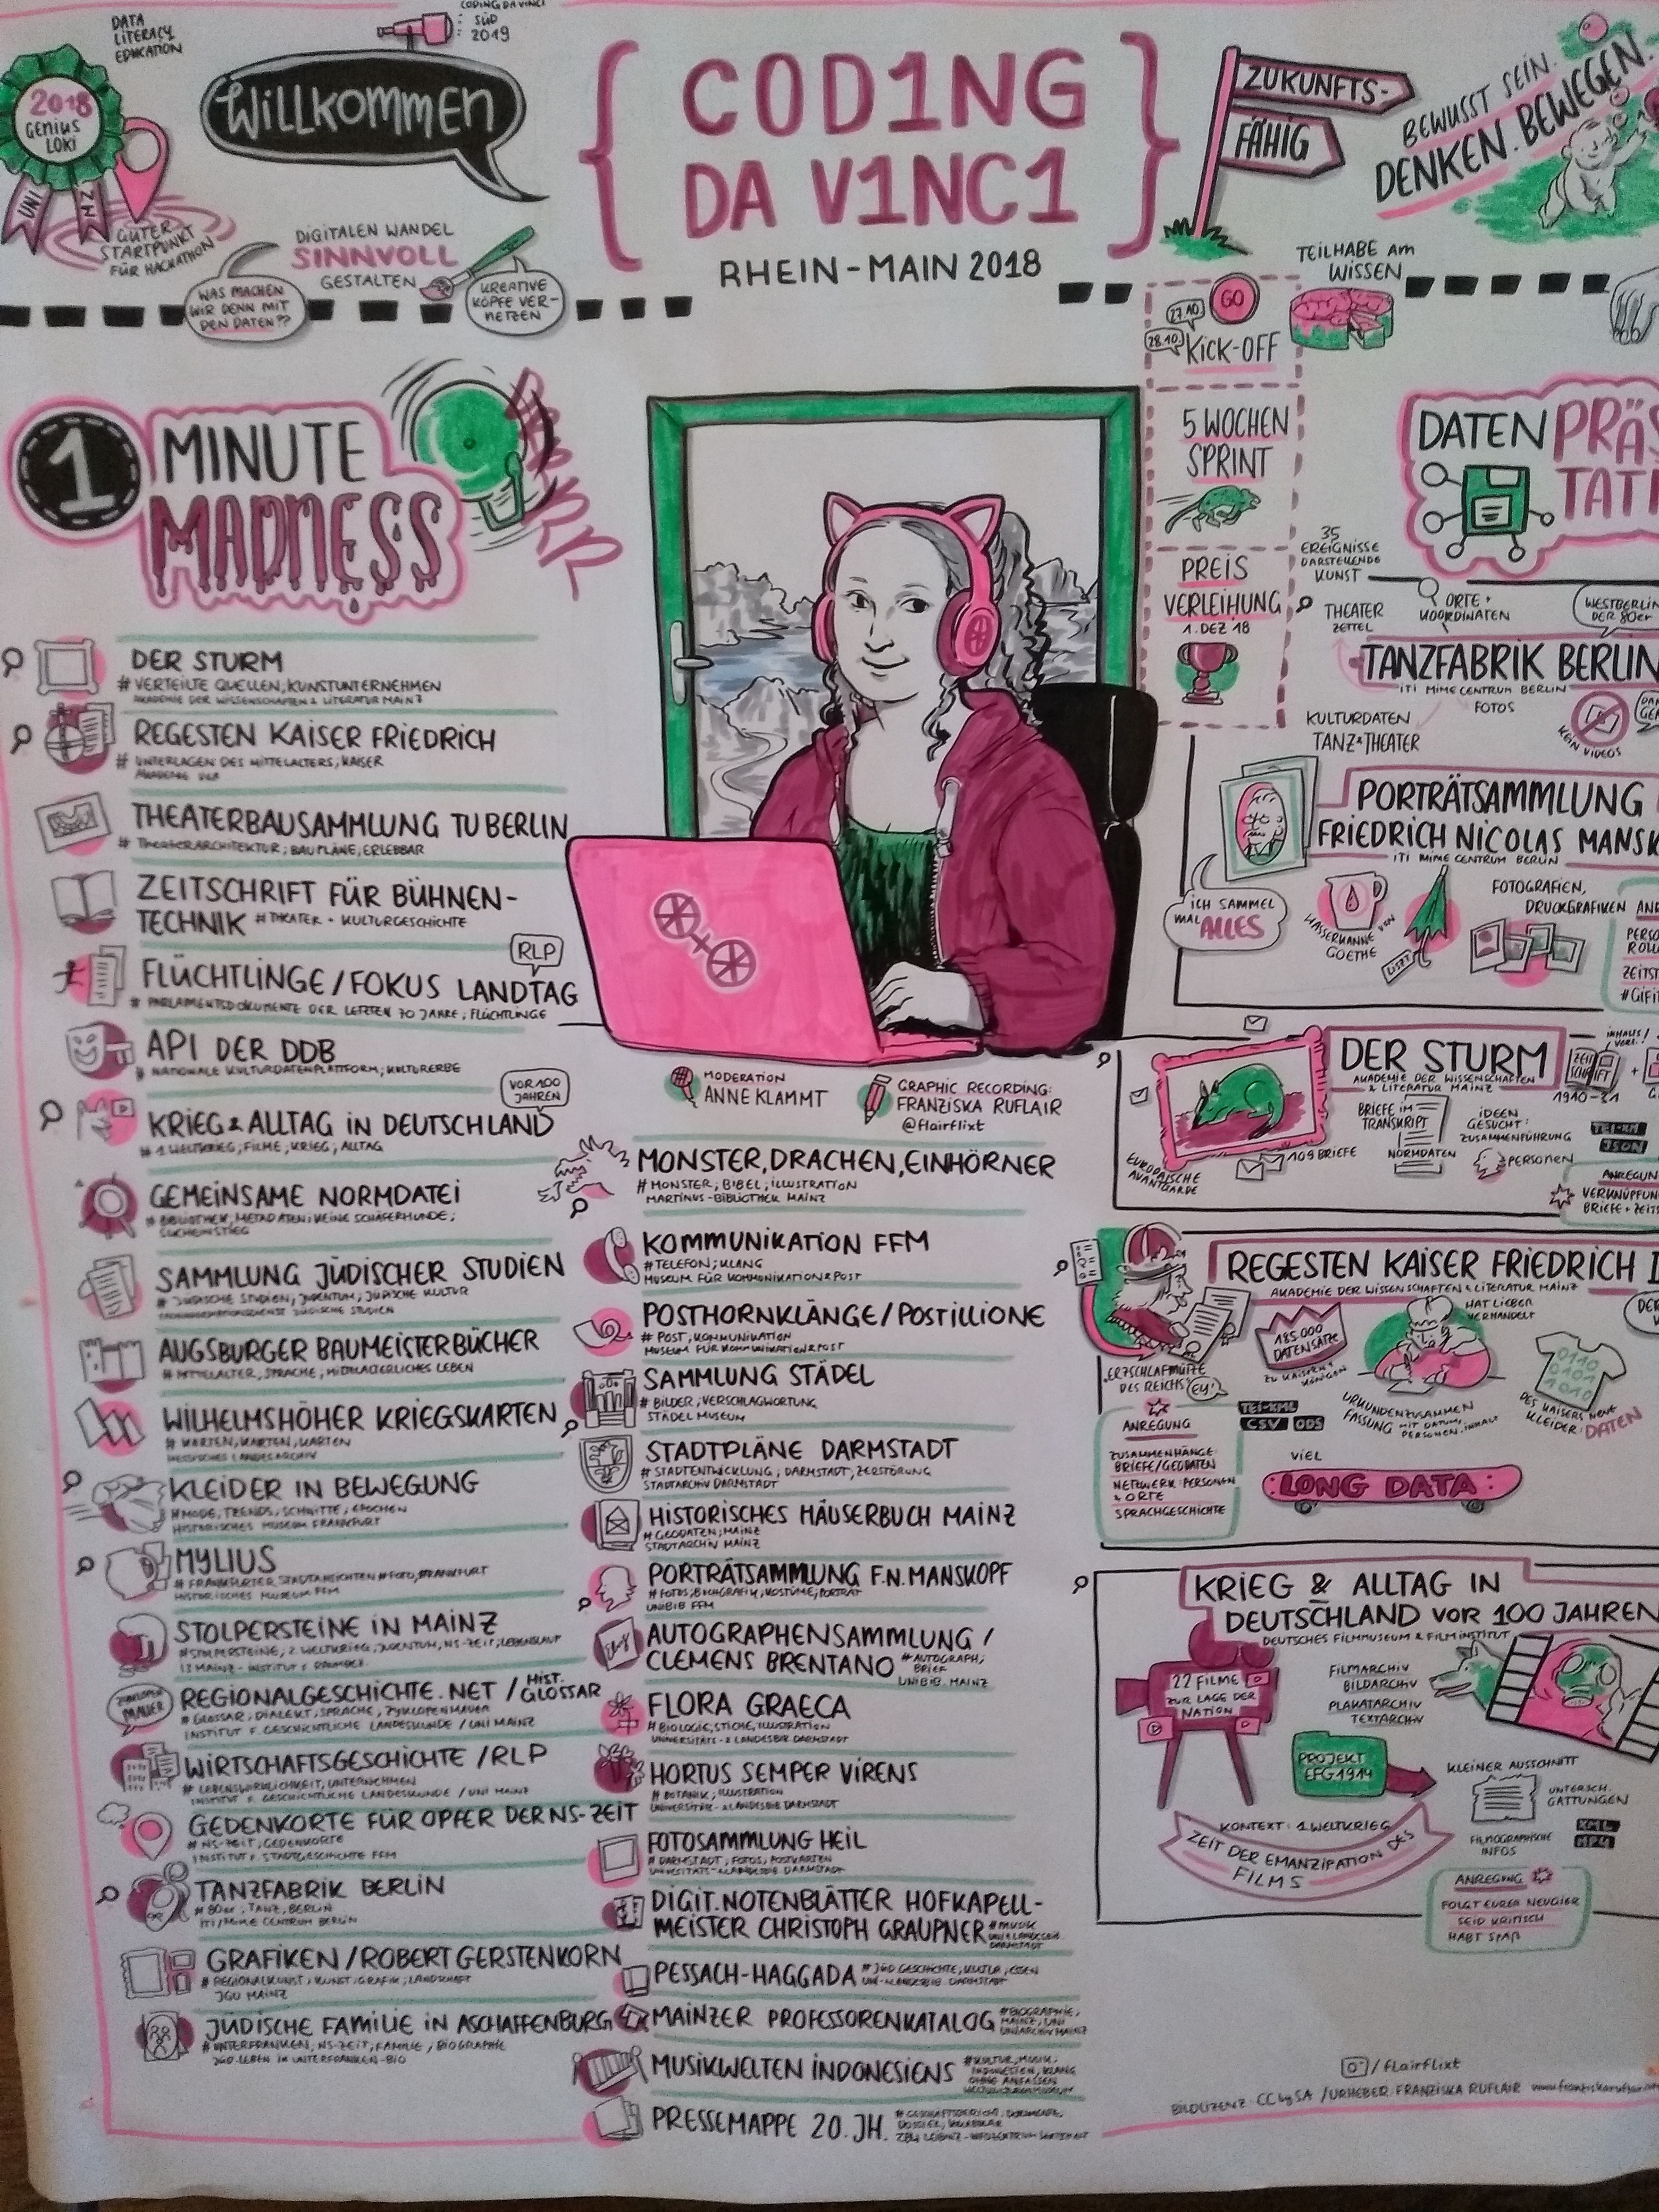 DATA
LITERACY
EDUCATION
CODING DA VINCI
SÜD
2019
2018
GENIUS
LOKI
UNI
MZ
GUTER
STARTPUNKT
FÜR HACKATHON
WILLKOMMEN
DIGITALEN WANDEL
SINNVOLL
GESTALTEN
WAS MACHEN
WIR DENN MIT
DEN DATEN??
KREATIVE
KÖPFE VER-
NETZEN
{ COD1NG
DA V1NC1 }
RHEIN-MAIN 2018
ZUKUNFTS-
FÄHIG
BEWUSST SEIN.
DENKEN. BEWEGEN.
TEILHABE AM
WISSEN
GO
27.10.
28.10.
KICK-OFF
5 WOCHEN
SPRINT
PREIS
VERLEIHUNG
1. DEZ 18
1 MINUTE
MADNESS
RRRR
DER STURM
# VERTEILTE QUELLEN; KUNSTUNTERNEHMEN
AKADEMIE DER WISSENSCHAFTEN & LITERATUR MAINZ
REGESTEN KAISER FRIEDRICH
# UNTERLAGEN DES MITTELALTERS, KAISER
AKADEMIE DER
THEATERBAUSAMMLUNG TU BERLIN
# THEATERARCHITEKTUR; BAUPLÄNE, ERLEBBAR
ZEITSCHRIFT FÜR BÜHNEN-
TECHNIK # THEATER + KULTURGESCHICHTE
RLP
FLÜCHTLINGE/FOKUS LANDTAG
# PARLAMENTSDOKUMENTE DER LETZTEN 70 JAHRE; FLÜCHTLINGE
API DER DDB
# NATIONALE KULTURDATENPLATTFORM; KULTURERBE
VOR 100
JAHREN
KRIEG & ALLTAG IN DEUTSCHLAND
# 1 WELTKRIEG; FILME; KRIEG; ALLTAG
GEMEINSAME NORMDATEI
# BIBLIOTHEK; METADATEN; KEINE SCHÄFERHUNDE;
SUCHEINSTIEG
SAMMLUNG JÜDISCHER STUDIEN
# JÜDISCHE STUDIEN; JUDENTUM; JÜDISCHE KULTUR
JÜDISCHE STUDIEN
AUGSBURGER BAUMEISTERBÜCHER
# MITTELALTER, SPRACHE, MITTELALTERLICHES LEBEN
WILHELMSHÖHER KRIEGSKARTEN
# KARTEN, KARTEN, KARTEN
HESSISCHES LANDESARCHIV
KLEIDER IN BEWEGUNG
# MODE, TRENDS, SCHNITTE, EPOCHEN
HISTORISCHES MUSEUM FRANKFURT
MYLIUS
# FRANKFURTER STADTANSICHTEN # FOTO, FRANKFURT
HISTORISCHES MUSEUM FFM
STOLPERSTEINE IN MAINZ
# STOLPERSTEINE, 2. WELTKRIEG, JUDENTUM, NS-ZEIT, LEBENSLAUF
MAUER
REGIONALGESCHICHTE.NET / HIST. GLOSSAR
# GLOSSAR, DIALEKT, SPRACHE, ZYKLOPENMAUER
INSTITUT F. GESCHICHTLICHE LANDESKUNDE / UNI MAINZ
WIRTSCHAFTSGESCHICHTE / RLP
# LEBENSWIRKLICHKEIT, UNTERNEHMEN
INSTITUT F. GESCHICHTLICHE LANDESKUNDE / UNI MAINZ
GEDENKORTE FÜR OPFER DER NS-ZEIT
# NS-ZEIT; GEDENKORTE
INSTITUT F. STADTGESCHICHTE FFM
TANZFABRIK BERLIN
# 80er; TANZ, BERLIN
ITI/MIME CENTRUM BERLIN
GRAFIKEN / ROBERT GERSTENKORN
# REGIONALKUNST, KUNST, GRAFIK, LANDSCHAFT
JGU MAINZ
JÜDISCHE FAMILIE IN ASCHAFFENBURG
# UNTERFRANKEN, NS-ZEIT, FAMILIE, BIOGRAPHIE
JÜD. LEBEN IN UNTERFRANKEN-BIO
MODERATION
ANNE KLAMMT
GRAPHIC RECORDING:
FRANZISKA RUFLAIR
@flairflixt
MONSTER, DRACHEN, EINHÖRNER
# MONSTER; BIBEL; ILLUSTRATION
MARTINUS-BIBLIOTHEK MAINZ
KOMMUNIKATION FFM
# TELEFON; KLANG
MUSEUM FÜR KOMMUNIKATION & POST
POSTHORNKLÄNGE / POSTILLIONE
# POST, KOMMUNIKATION
MUSEUM FÜR KOMMUNIKATION & POST
SAMMLUNG STÄDEL
# BILDER, VERSCHLAGWORTUNG
STÄDEL MUSEUM
STADTPLÄNE DARMSTADT
# STADTENTWICKLUNG; DARMSTADT; ZERSTÖRUNG
STADTARCHIV DARMSTADT
HISTORISCHES HÄUSERBUCH MAINZ
# GEODATEN; MAINZ
STADTARCHIV MAINZ
PORTRÄTSAMMLUNG F.N. MANSKOPF
# FOTOS; DRUCKGRAFIK; KOSTÜME; PORTRÄT
UNIBIB FFM
AUTOGRAPHENSAMMLUNG /
CLEMENS BRENTANO # AUTOGRAPH;
BRIEF
UNIBIB. MAINZ
FLORA GRAECA
# BIOLOGIE, STICHE, ILLUSTRATION
UNIVERSITÄTS- & LANDESBIB DARMSTADT
HORTUS SEMPER VIRENS
# BOTANIK; ILLUSTRATION
UNIVERSITÄTS- & LANDESBIB DARMSTADT
FOTOSAMMLUNG HEIL
# DARMSTADT, FOTOS, POSTKARTEN
UNIVERSITÄTS- & LANDESBIB. DARMSTADT
DIGIT. NOTENBLÄTTER HOFKAPELL-
MEISTER CHRISTOPH GRAUPNER # MUSIK
UNI & LANDESBIB.
DARMSTADT
PESSACH-HAGGADA # JÜD. GESCHICHTE, KULTUR, ESSEN
UNI- & LANDESBIB. DARMSTADT
MAINZER PROFESSORENKATALOG # BIOGRAPHIE,
MAINZ, UNI
UNIARCHIV MAINZ
MUSIKWELTEN INDONESIENS # KULTUR, MUSIK,
INDONESIEN, KLANG
OHNE ANFASSEN
PRESSEMAPPE 20. JH. # GESCHÄFTSBERICHT, DOKUMENTE,
DOSSIER,
ZBW LEIBNIZ-INFOZENTRUM WIRTSCHAFT
DATEN PRÄS
TATI
35
EREIGNISSE
DARSTELLENDE
KUNST
THEATER
ZETTEL
ORTE +
KOORDINATEN
WESTBERLIN
DER 80er
TANZFABRIK BERLIN
ITI MIME CENTRUM BERLIN
FOTOS
KULTURDATEN
TANZ & THEATER
KEIN VIDEOS
PORTRÄTSAMMLUNG
FRIEDRICH NICOLAS MANSK
ITI MIME CENTRUM BERLIN
ICH SAMMEL
MAL ALLES
WASSERKANNE VON
GOETHE
LISZT
FOTOGRAFIEN,
DRUCKGRAFIKEN
ANR
PERSO
ROLL
ZEITST
#GIFIT
DER STURM
AKADEMIE DER WISSENSCHAFTEN
& LITERATUR MAINZ
INHALTS
VERZ.
ZEIT
SCHRIFT
1910-31
BRIEFE IM
TRANSKRIPT
NORMDATEN
IDEEN
GESUCHT:
ZUSAMMENFÜHRUNG
PERSONEN
TEI-XM
JSON
EUROPÄISCHE
AVANTGARDE
109 BRIEFE
ANREGUN
VERKNÜPFUN
BRIEFE + ZEITS
REGESTEN KAISER FRIEDRICH I
AKADEMIE DER WISSENSCHAFTEN & LITERATUR MAINZ
185.000
DATENSÄTZE
ZU KAISERN &
KÖNIGEN
HAT LIEBER
VERHANDELT
„ERZSCHLAFMÜTZE
DES REICHS“
EY!
TEI-XML
CSV ODS
URKUNDENZUSAMMEN
FASSUNG MIT DATUM, INHALT
PERSONEN
0110
0101
1010
DES KAISERS NEUE
KLEIDER: DATEN
ANREGUNG
ZUSAMMENHÄNGE:
BRIEFE/GEODATEN
NETZWERK: PERSONEN
& ORTE
SPRACHGESCHICHTE
VIEL
LONG DATA
KRIEG & ALLTAG IN
DEUTSCHLAND VOR 100 JAHREN
DEUTSCHES FILMMUSEUM & FILMINSTITUT
22 FILME
ZUR LAGE DER
NATION
FILMARCHIV
BILDARCHIV
PLAKATARCHIV
TEXTARCHIV
PROJEKT
EFG1914
KLEINER AUSSCHNITT
UNTERSCH.
GATTUNGEN
FILMOGRAPHISCHE
INFOS
XML
MP4
KONTEXT: 1 WELTKRIEG
ZEIT DER EMANZIPATION DES
FILMS
ANREGUNG
FOLGT EURER NEUGIER
SEID KRITISCH
HABT SPAß
/flairflixt
BILDLIZENZ: CC by SA / URHEBER: FRANZISKA RUFLAIR